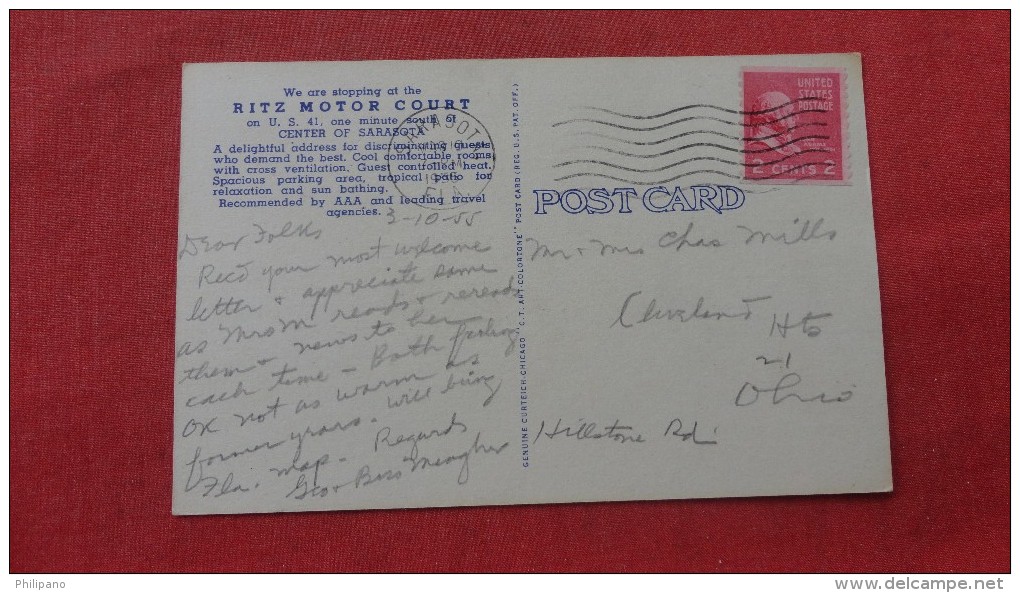 We are stopping at the
RITZ MOTOR COURT
on U. S. 41, one minute south of
CENTER OF SARASOTA
A delightful address for discriminating guests
who demand the best. Cool comfortable rooms
with cross ventilation. Guest controlled heat.
Spacious parking area, tropical patio for
relaxation and sun bathing.
Recommended by AAA and leading travel
agencies.
3-10-55
Dear Folks
Rec'd your most welcome
letter & appreciate same
as Mrs M reads & rereads
them & news to her
each time - Both feeling
OK not as warm as
former years. Will bring
Fla. map. Regards
Geo & Bess Meagher
GENUINE CURTEICH-CHICAGO "C.T. ART-COLORTONE" POST CARD (REG. U.S. PAT. OFF.)
SARASOTA
FLA.
UNITED
STATES
POSTAGE
2 CENTS 2
POST CARD
Mr & Mrs Chas Mills
Cleveland Hts
21
Ohio
Hillstone Rd.
Philipano
www.delcampe.net